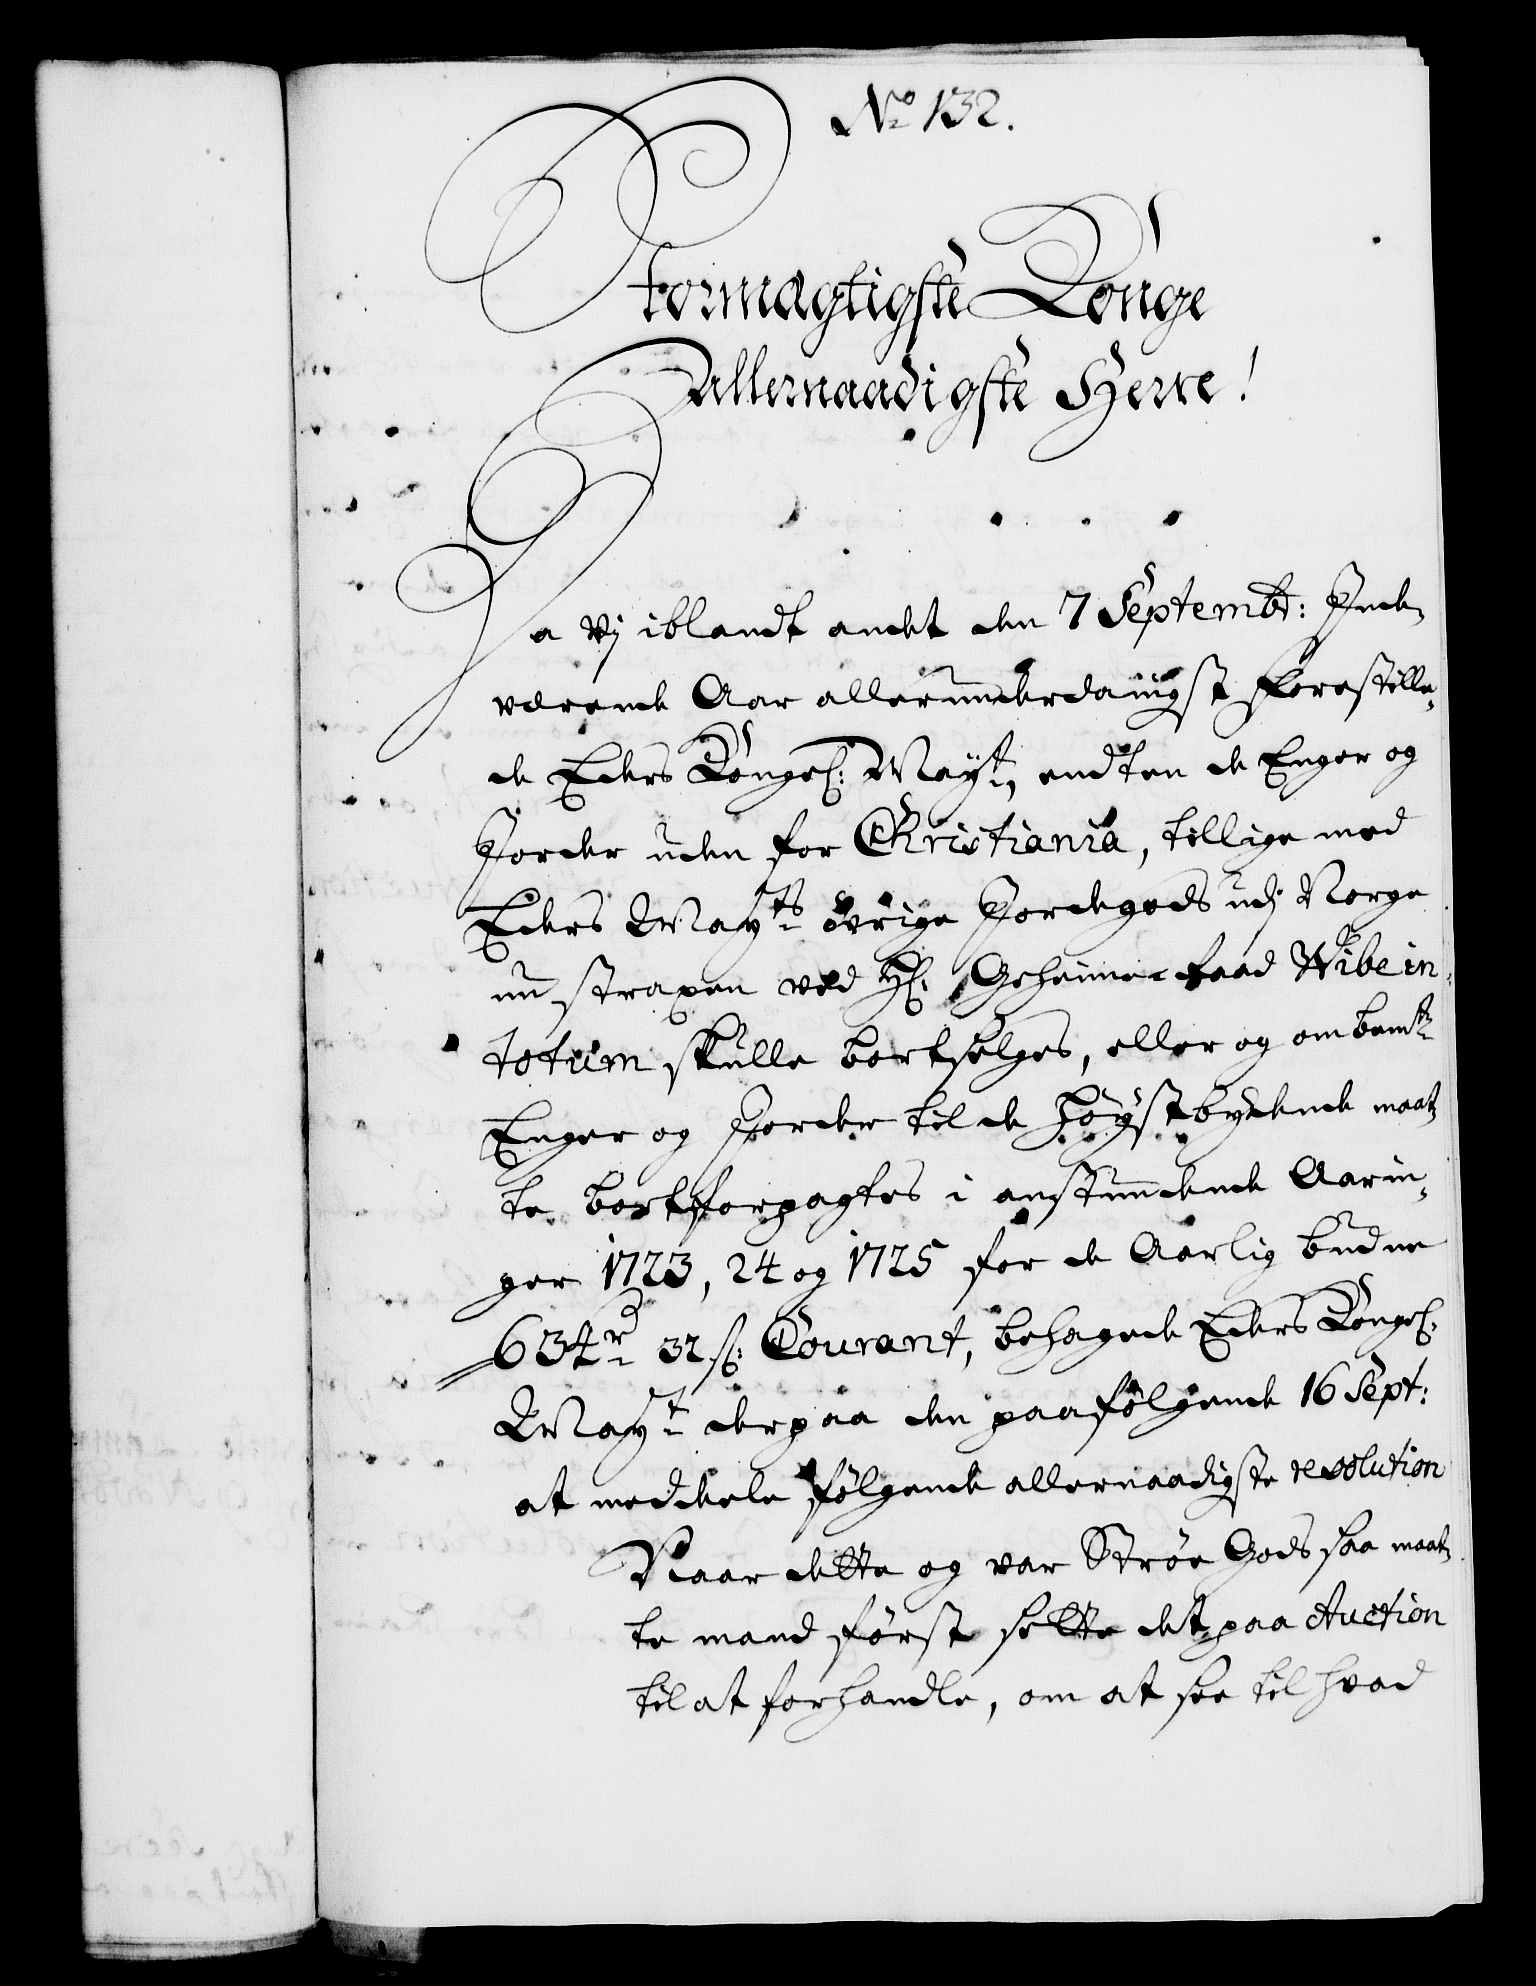 No 132.
Stormægtigste Konge
Allernaadigste Herre!
Da Vj iblandt andet den 7 Septembr: Inde-
værende Aar allerunderdanigst forestille-
de Eders Kongel: Mayt, endten de Enger og
Jorder uden for Christiania, tillige med
Eders Mayts övrige Jordegods udj Norge
nu straxen ved Hr. Geheime Raad Wibe in
totum skulle bortselges, eller og om bemte
Enger og Jorder til de höystbydende maat-
te bortforpagtes i anstundende Aarin-
ger 1723, 24 og 1725 for de Aarlig budne
634 rd 32 s: Courant, behagede Eders Kongel:
Mayt derpaa den paafölgende 16 Sept:
at meddeele fölgende allernaadigste resolution
Naar dette og var Ströe Gods saa maat-
te mand først sette det paa Auction
til at forhandle, om at see til hvad